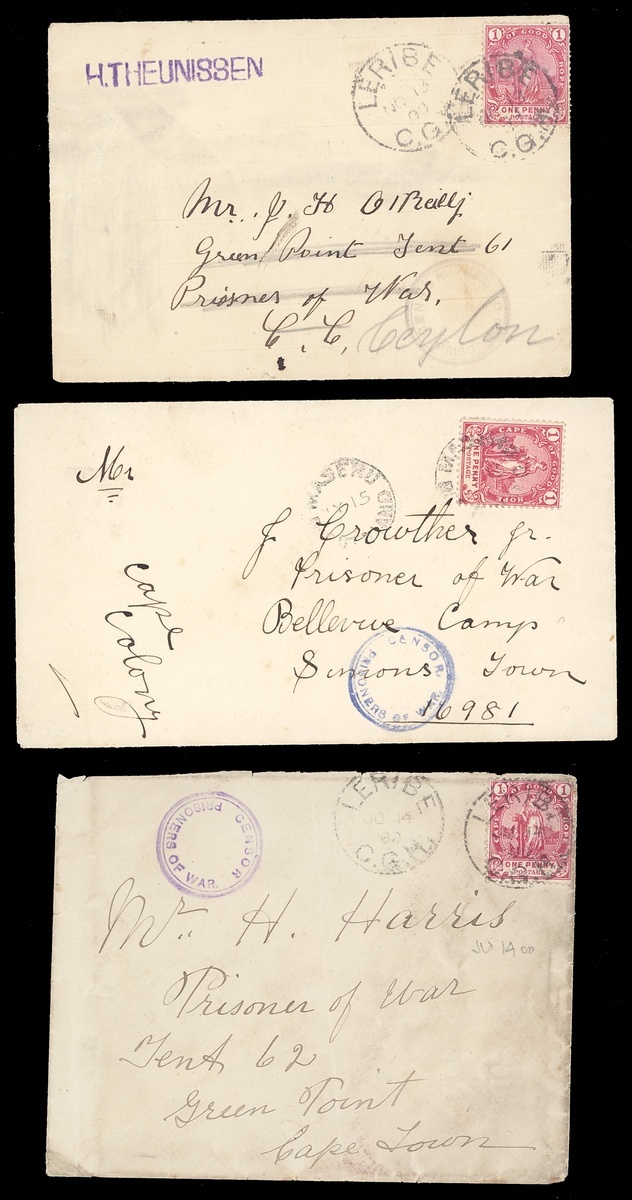 H.THEUNISSEN
LERIBE
C.G.H.
LERIBE
C.G.H.
1 OF GOOD HOPE 1
ONE PENNY
POSTAGE
Mr. J. H O'Reilly
Green Point Tent 61
Prisner of War,
C. C, Ceylon
Mr
MASERU
15
CAPE OF GOOD HOPE
ONE PENNY
POSTAGE
1
1
J Crowther jr.
Prisoner of War
Bellevue Camp
Simons Town
16981
Cape
Colony
CENSOR.
PRISONERS OF WAR.
CENSOR
PRISONERS OF WAR.
LERIBE
14
00
C.G.H.
LERIBE
1 OF GOOD HOPE 1
ONE PENNY
POSTAGE
Mr. H. Harris
JU 14 00
Prisoner of War
Tent 62
Green Point
Cape Town